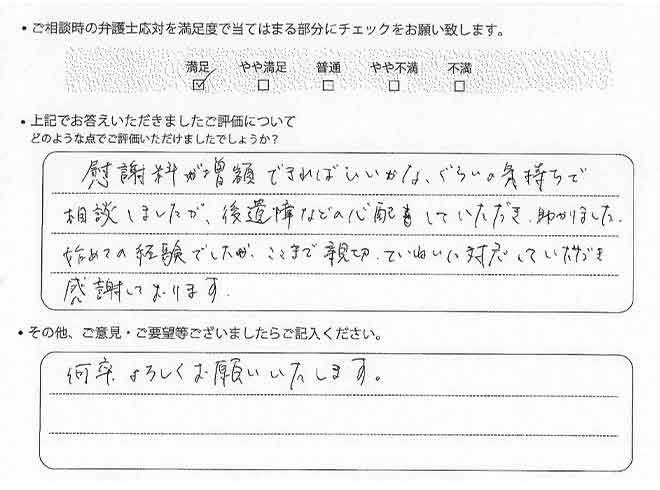 ・ご相談時の弁護士応対を満足度で当てはまる部分にチェックをお願い致します。
満足 やや満足 普通 やや不満 不満
☑ ☐ ☐ ☐ ☐
・上記でお答えいただきましたご評価について
どのような点でご評価いただけましたでしょうか？
慰謝料が増額できればいいかな、ぐらいの気持ちで
相談しましたが、後遺障などの心配までしていただき、助かりました。
始めての経験でしたが、ここまで親切、ていねいに対応していただき
感謝しております。
・その他、ご意見・ご要望等ございましたらご記入ください。
何卒よろしくお願いいたします。